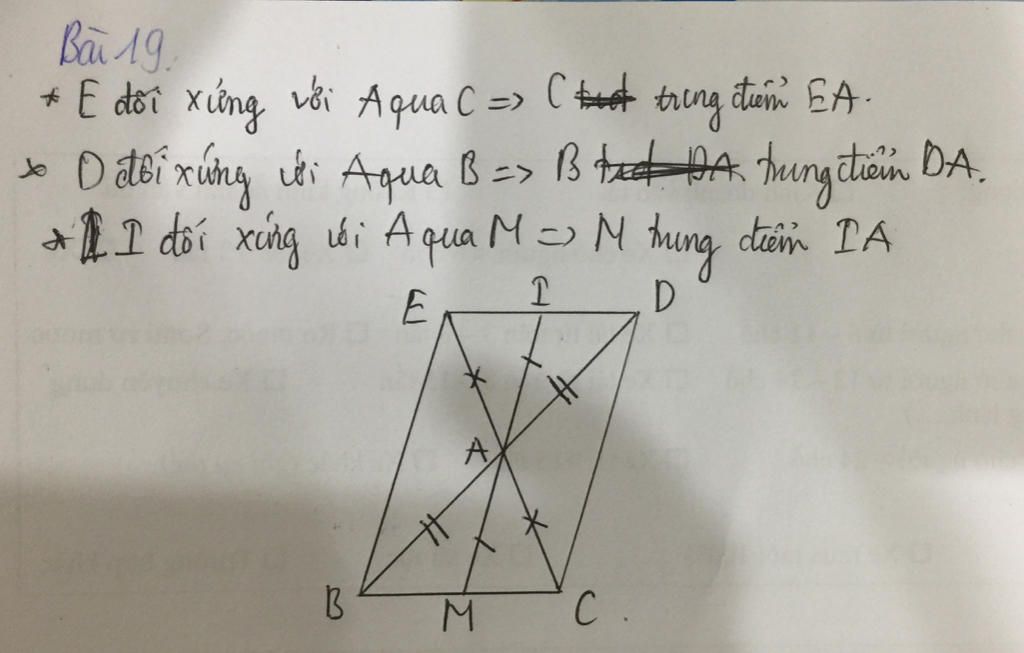 Bài 19.
* E đối xứng với A qua C => C trung điểm EA.
* D đối xứng với A qua B => B trung điểm DA.
* I đối xứng với A qua M => M trung điểm IA
E I D
A
B M C